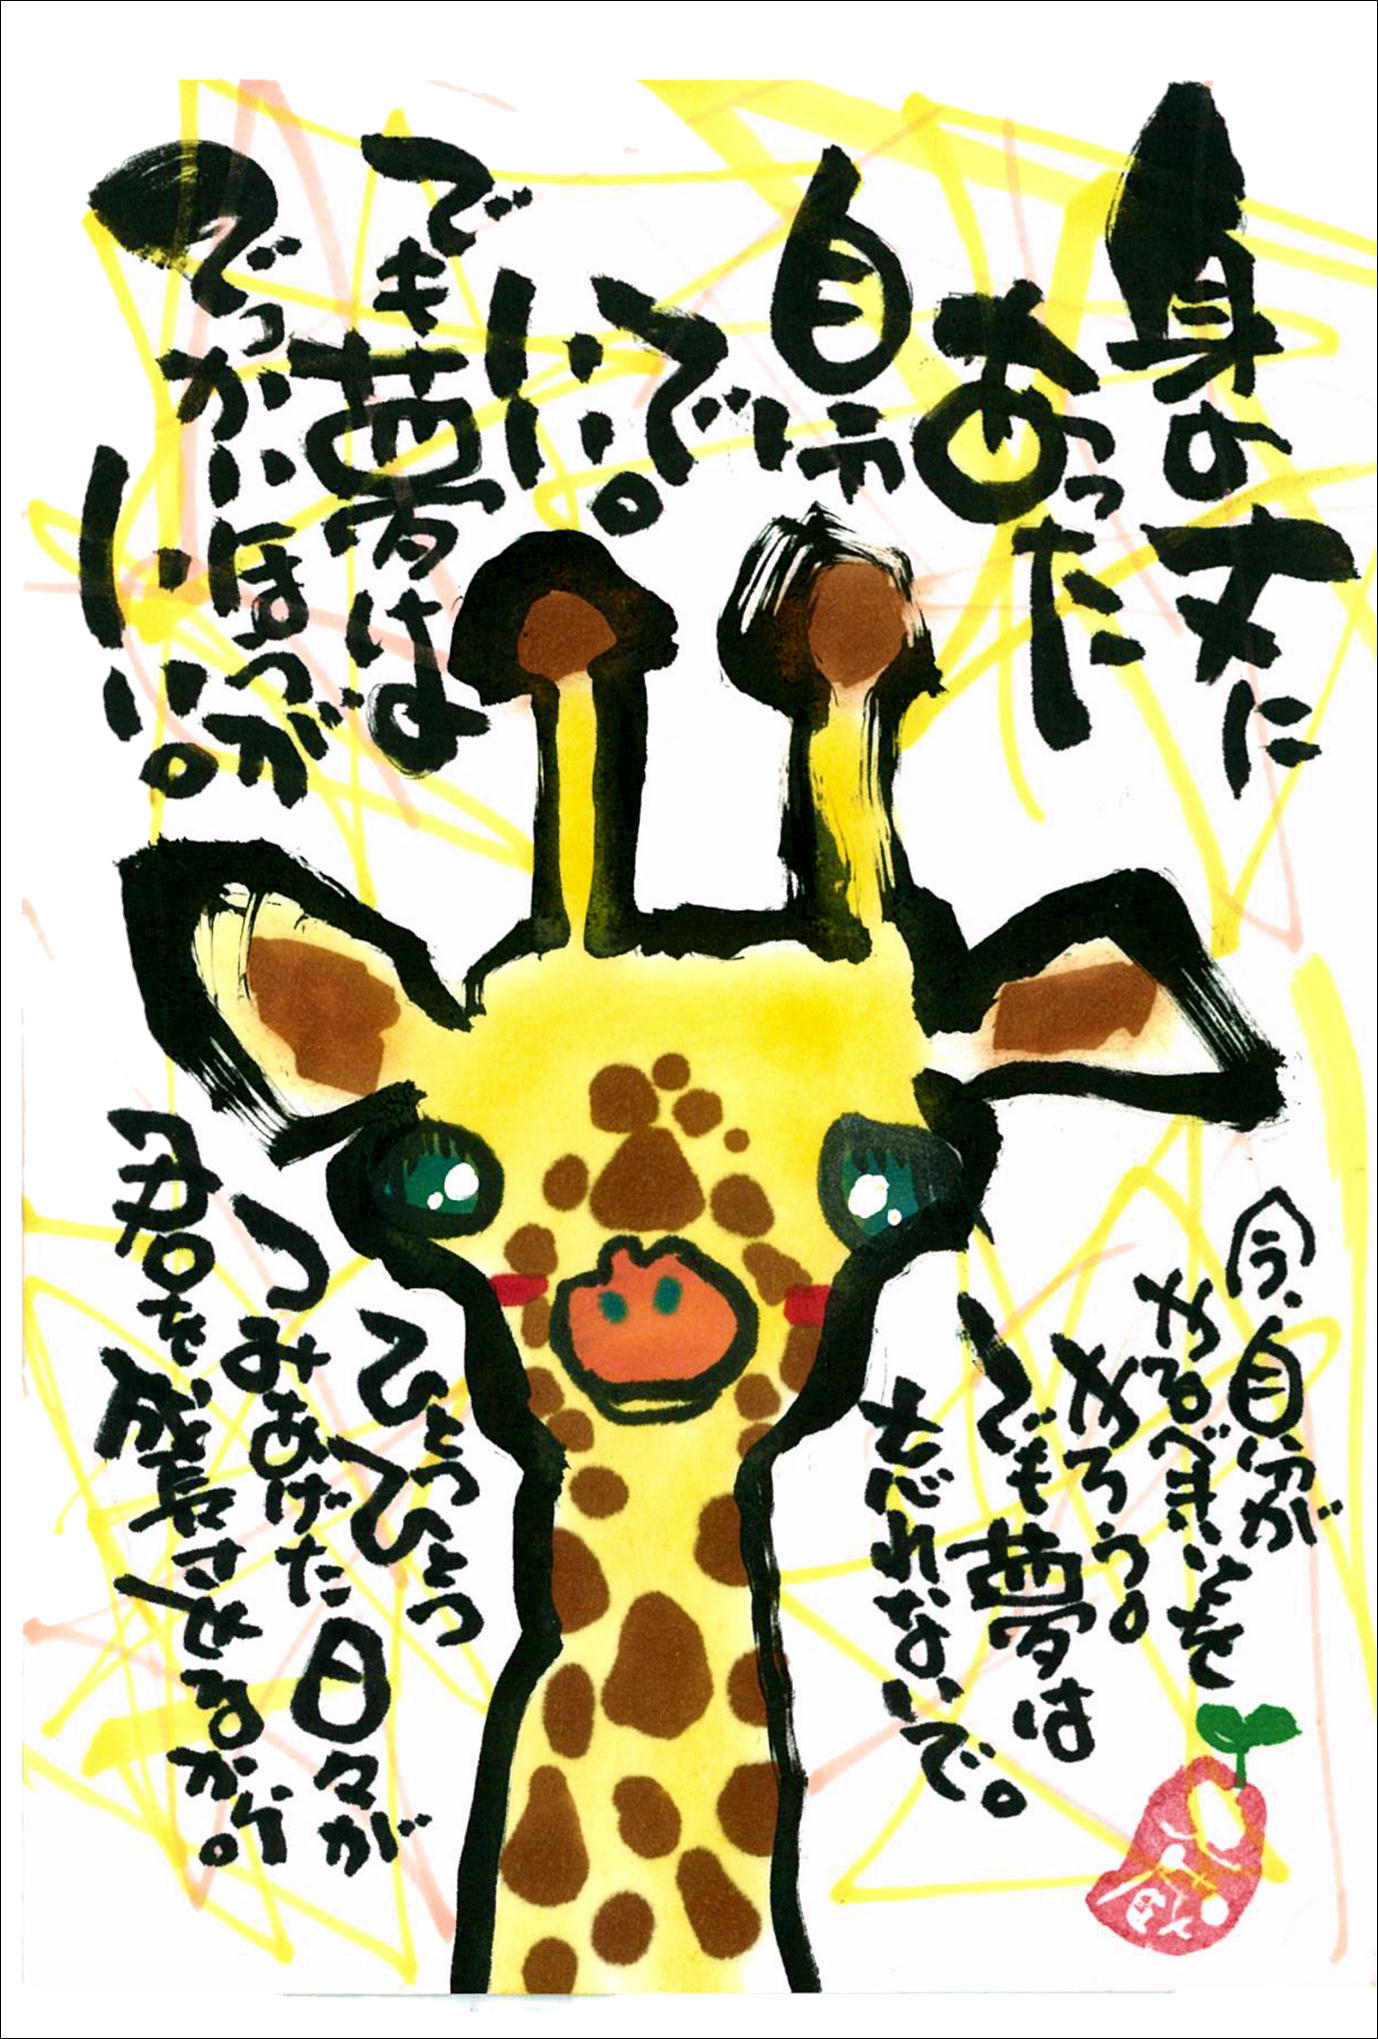 身の丈に
あった
自分
でいい。
でも夢は
でっかいほうが
いい。
今、自分が
やるべきことを
やろう。
でも夢は
忘れないで。
ひとつひとつ
つみあげた日々が
君を成長させるから。